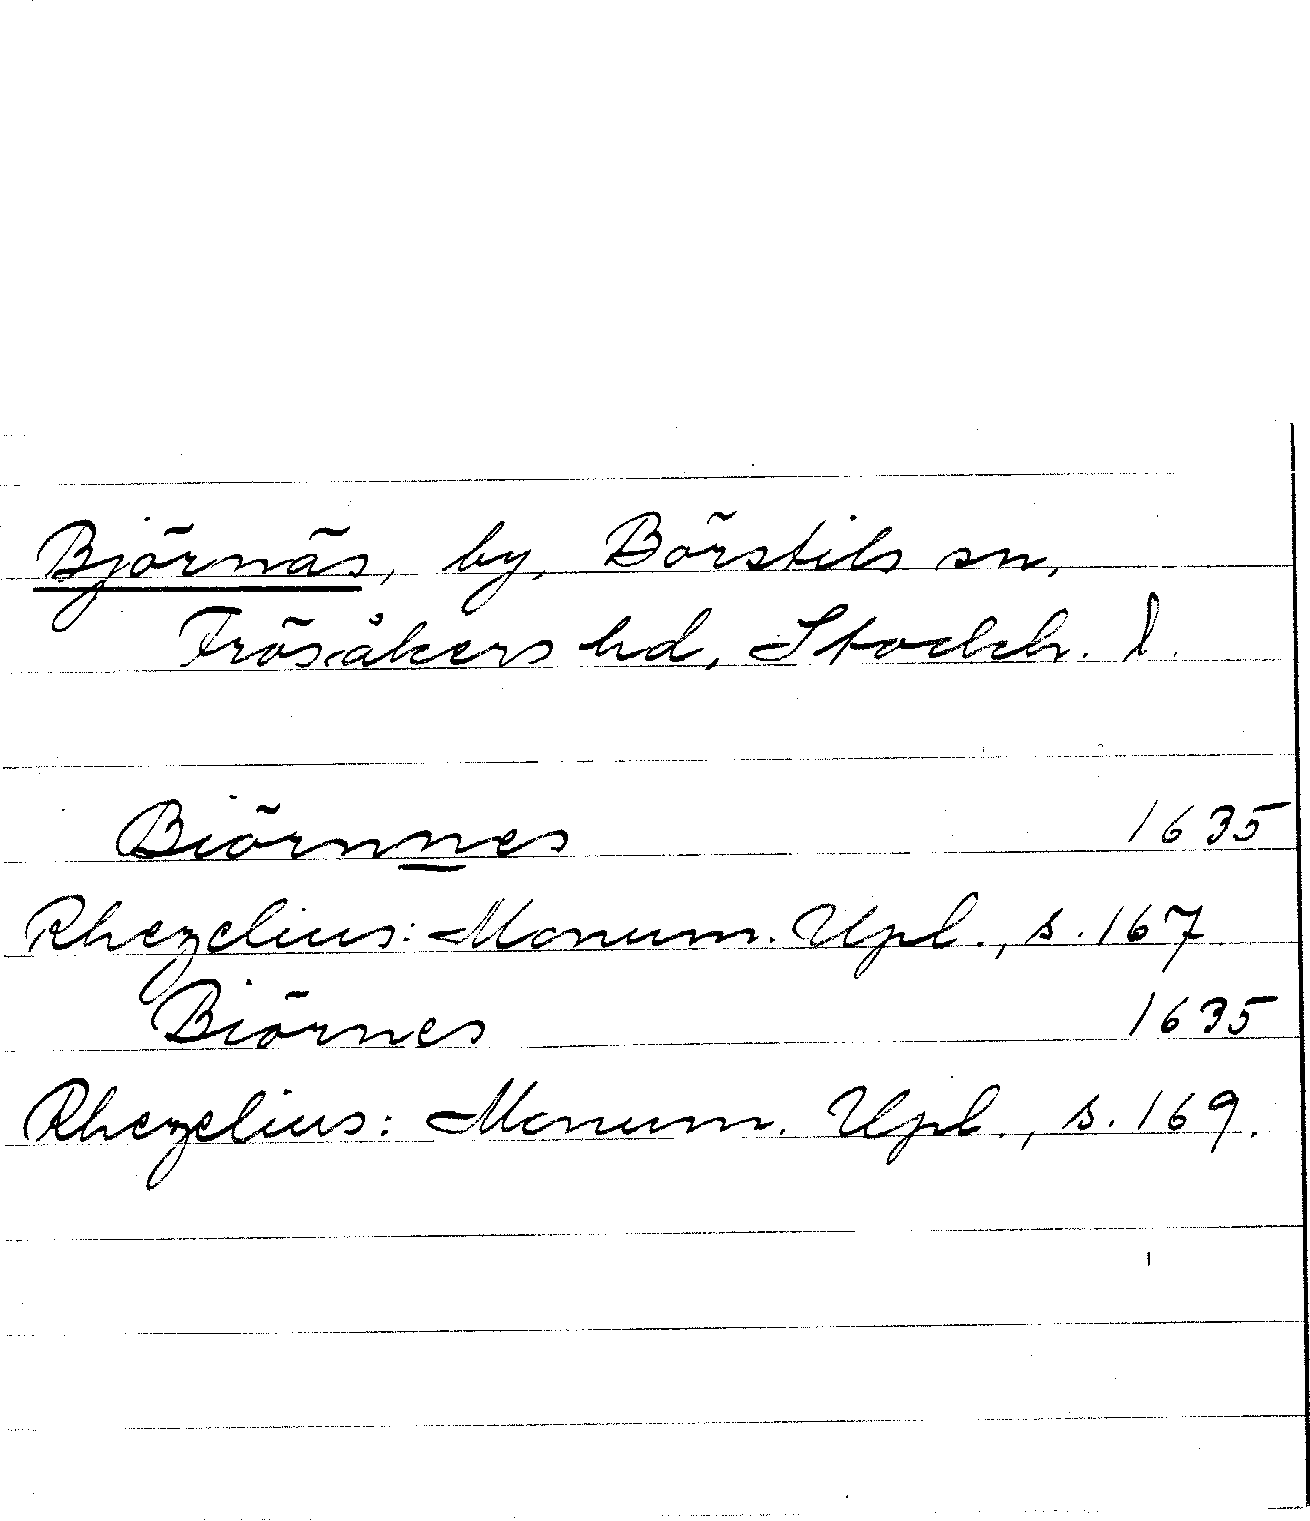 Björnäs, by, Börstils sn,
Frösåkers hd, Stockh. l.
Biörnnes 1635
Rhezelius: Monum. Upl., s. 167
Biörnes 1635
Rhezelius: Monum. Upl., s. 169.